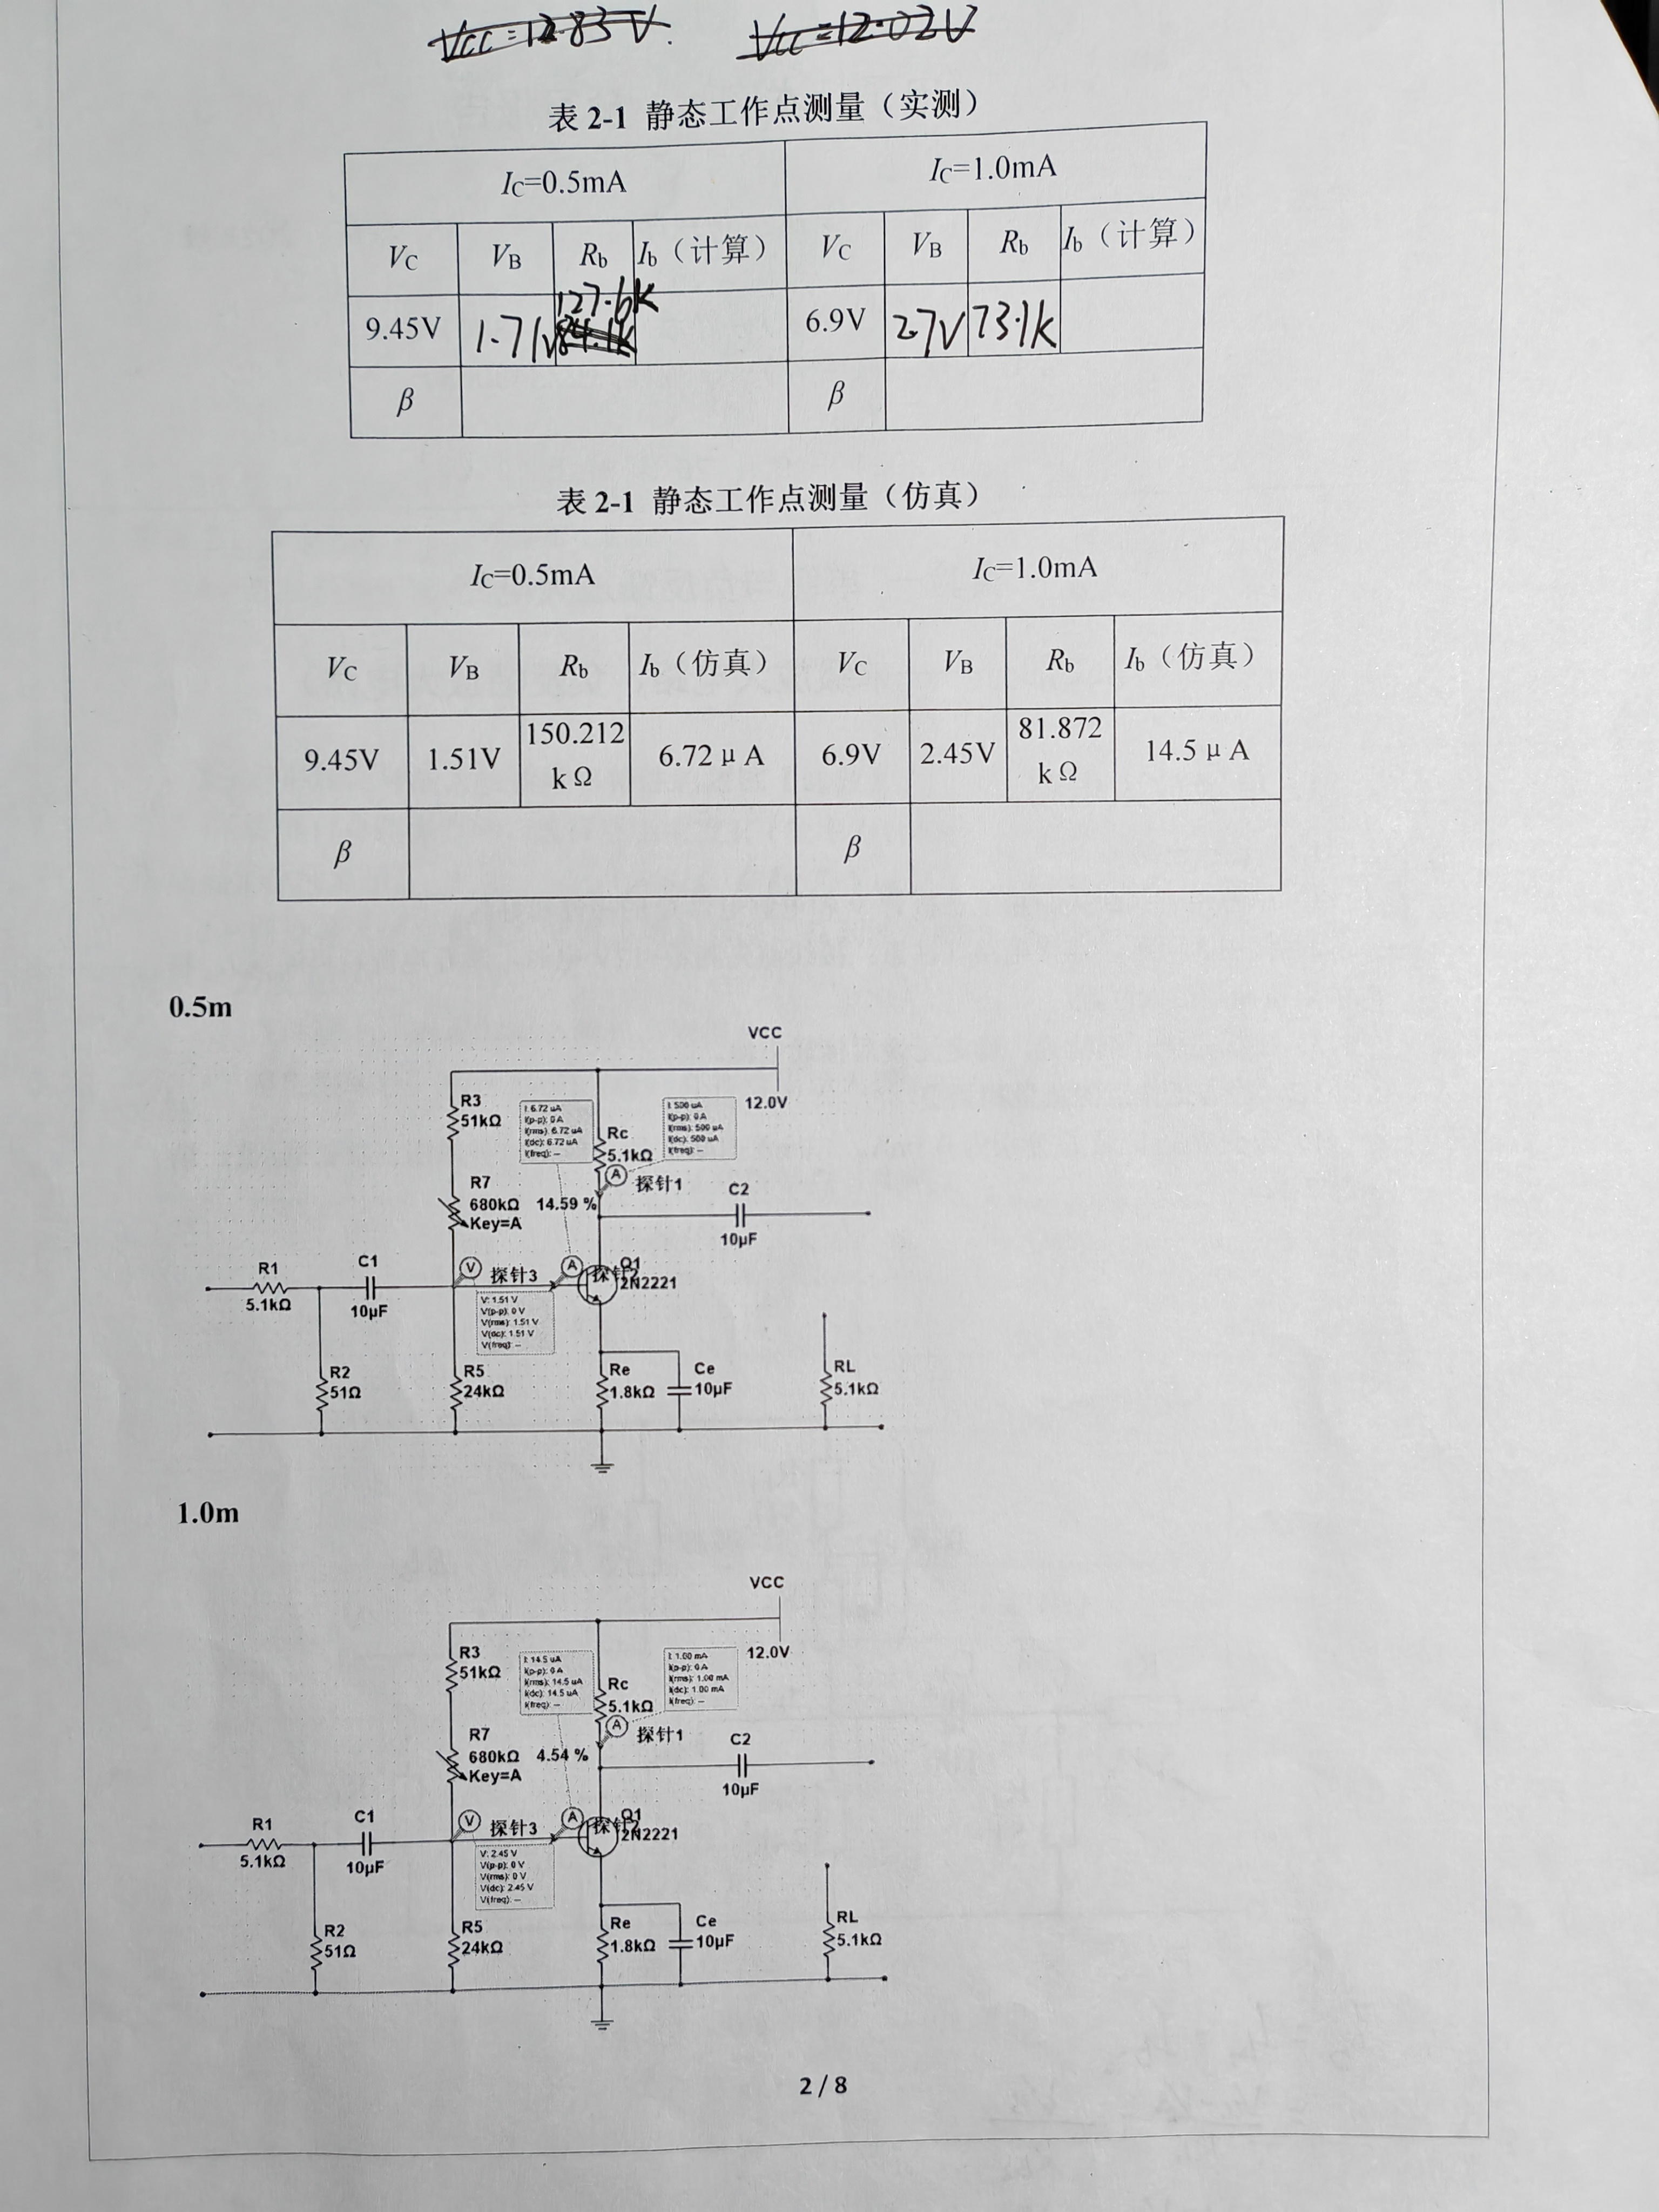 Vcc=12.83V. Vcc=12.02V
表 2-1 静态工作点测量（实测）
IC=0.5mA IC=1.0mA
VC VB Rb Ib（计算） VC VB Rb Ib（计算）
127.6k
9.45V 1.71V 84.1k 6.9V 2.7V 73.1k
β β
表 2-1 静态工作点测量（仿真）
IC=0.5mA IC=1.0mA
VC VB Rb Ib（仿真） VC VB Rb Ib（仿真）
9.45V 1.51V 150.212 kΩ 6.72 μA 6.9V 2.45V 81.872 kΩ 14.5 μA
β β
0.5m
VCC
12.0V
R3
51kΩ
I: 6.72 uA
I(p-p): 0 A
I(rms): 6.72 uA
I(dc): 6.72 uA
I(freq): --
Rc
5.1kΩ
I: 500 uA
I(p-p): 0 A
I(rms): 500 uA
I(dc): 500 uA
I(freq): --
A
探针1
R7
680kΩ 14.59 %
Key=A
C2
10μF
R1
5.1kΩ
C1
10μF
V
探针3
A
探针
Q1
2N2221
V: 1.51 V
V(p-p): 0 V
V(rms): 1.51 V
V(dc): 1.51 V
V(freq): --
R2
51Ω
R5
24kΩ
Re
1.8kΩ
Ce
10μF
RL
5.1kΩ
1.0m
VCC
12.0V
R3
51kΩ
I: 14.5 uA
I(p-p): 0 A
I(rms): 14.5 uA
I(dc): 14.5 uA
I(freq): --
Rc
5.1kΩ
I: 1.00 mA
I(p-p): 0 A
I(rms): 1.00 mA
I(dc): 1.00 mA
I(freq): --
A
探针1
R7
680kΩ 4.54 %
Key=A
C2
10μF
R1
5.1kΩ
C1
10μF
V
探针3
A
探针
Q1
2N2221
V: 2.45 V
V(p-p): 0 V
V(rms): 0 V
V(dc): 2.45 V
V(freq): --
R2
51Ω
R5
24kΩ
Re
1.8kΩ
Ce
10μF
RL
5.1kΩ
2 / 8